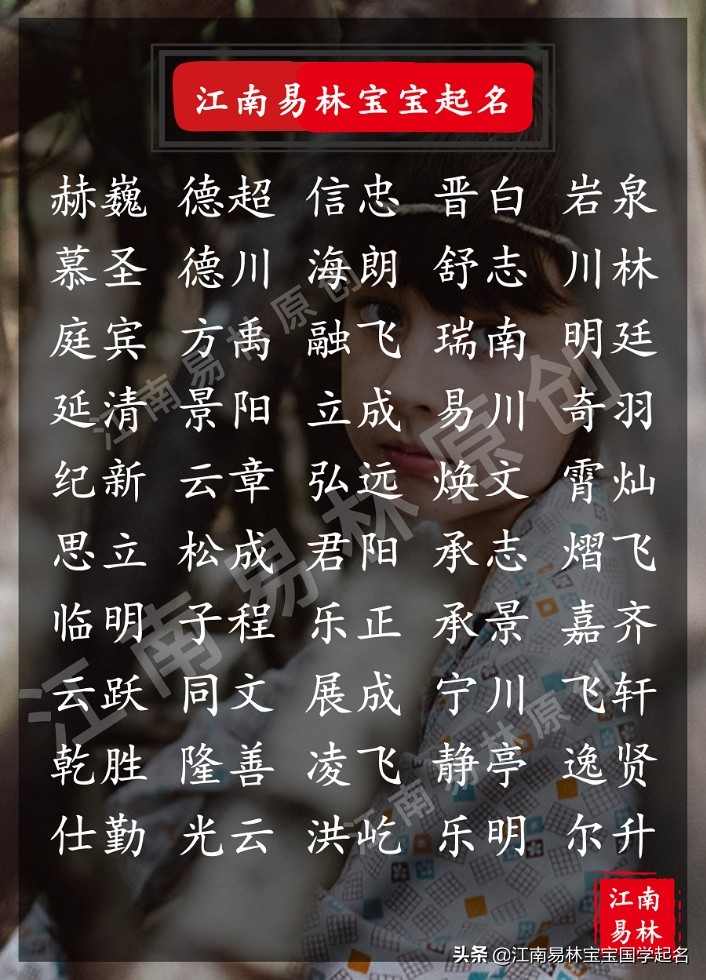 江南易林宝宝起名
赫巍 德超 信忠 晋白 岩泉
慕圣 德川 海朗 舒志 川林
庭宾 方禹 融飞 瑞南 明廷
延清 景阳 立成 易川 奇羽
纪新 云章 弘远 焕文 霄灿
思立 松成 君阳 承志 熠飞
临明 子程 乐正 承景 嘉齐
云跃 同文 展成 宁川 飞轩
乾胜 隆善 凌飞 静亭 逸贤
仕勤 光云 洪屹 乐明 尔升
江南易林原创
江南易林原创
江南易林原创
江南
易林
头条 @江南易林宝宝国学起名